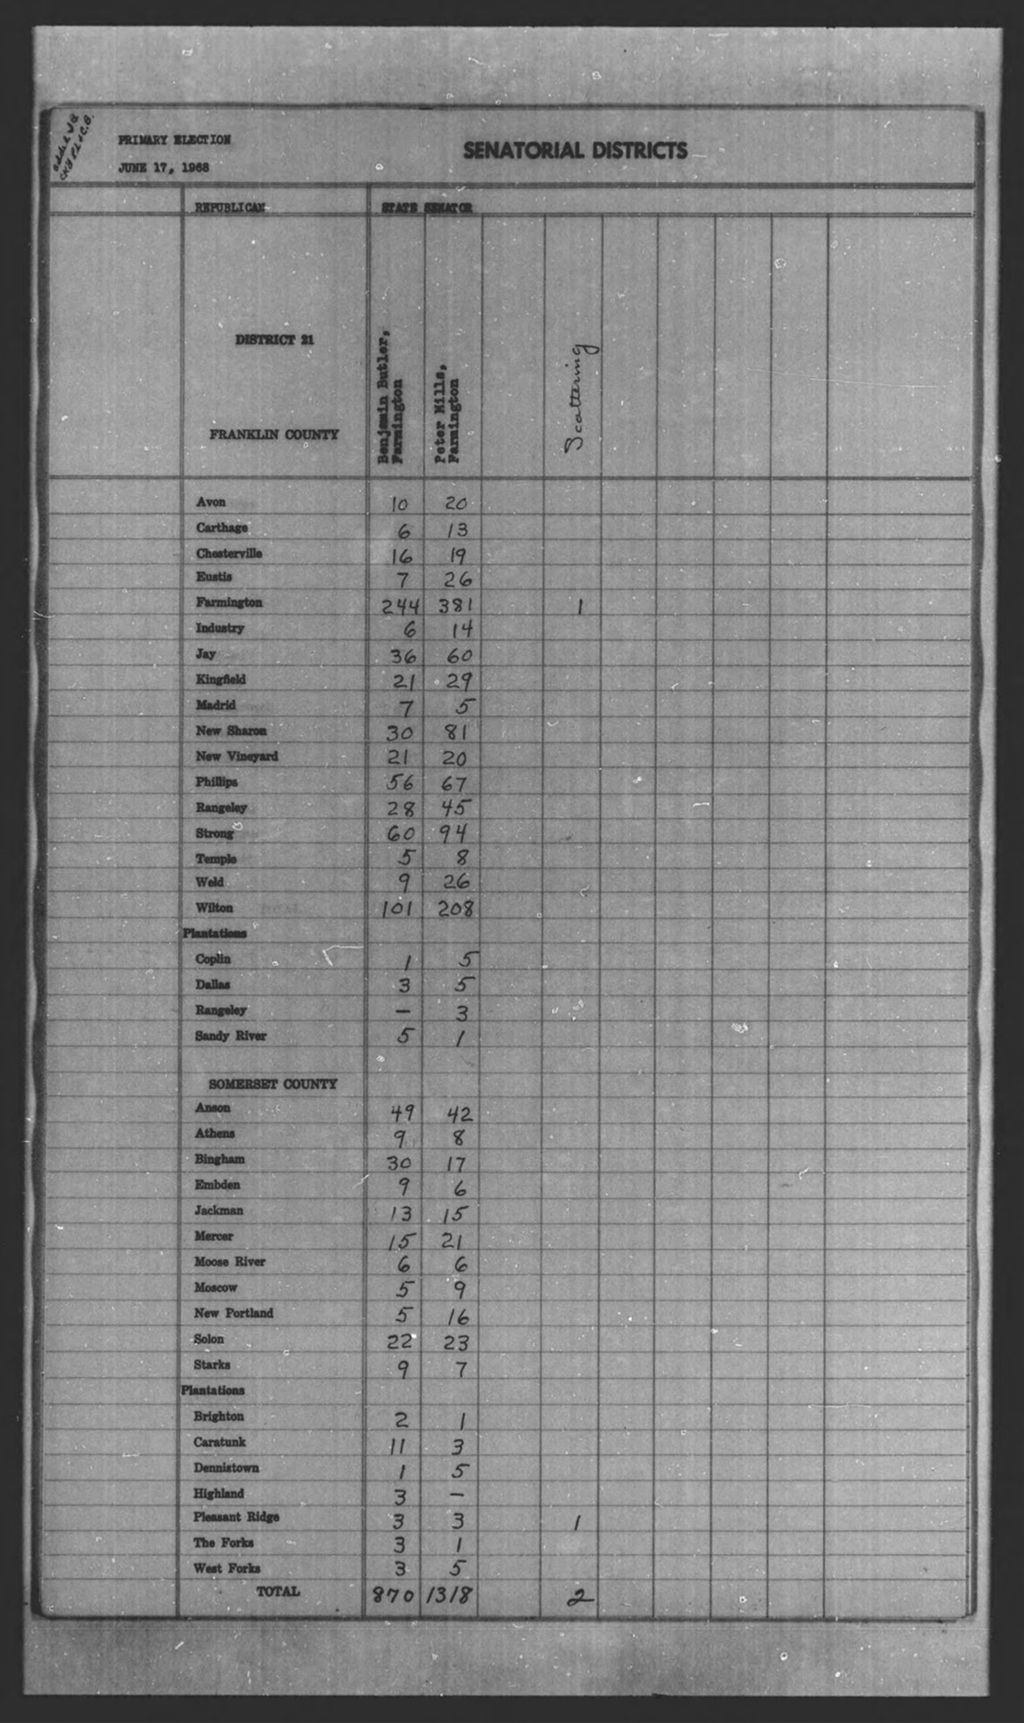 added JB
CKB EL & C.B.
PRIMARY ELECTION
JUNE 17, 1968
SENATORIAL DISTRICTS
REPUBLICAN STATE SENATOR
DISTRICT 21
FRANKLIN COUNTY
Benjamin Butler, Farmington
Peter Mills, Farmington
Scattering
Avon 10 20
Carthage 6 13
Chesterville 16 19
Eustis 7 26
Farmington 244 381 1
Industry 6 14
Jay 36 60
Kingfield 21 29
Madrid 7 5
New Sharon 30 81
New Vineyard 21 20
Phillips 56 67
Rangeley 28 45
Strong 60 94
Temple 5 8
Weld 9 26
Wilton 101 208
Plantations
Coplin 1 5
Dallas 3 5
Rangeley — 3
Sandy River 5 1
SOMERSET COUNTY
Anson 49 42
Athens 9 8
Bingham 30 17
Embden 9 6
Jackman 13 15
Mercer 15 21
Moose River 6 6
Moscow 5 9
New Portland 5 16
Solon 22 23
Starks 9 7
Plantations
Brighton 2 1
Caratunk 11 3
Dennistown 1 5
Highland 3 —
Pleasant Ridge 3 3 1
The Forks 3 1
West Forks 3 5
TOTAL 870 1318 2